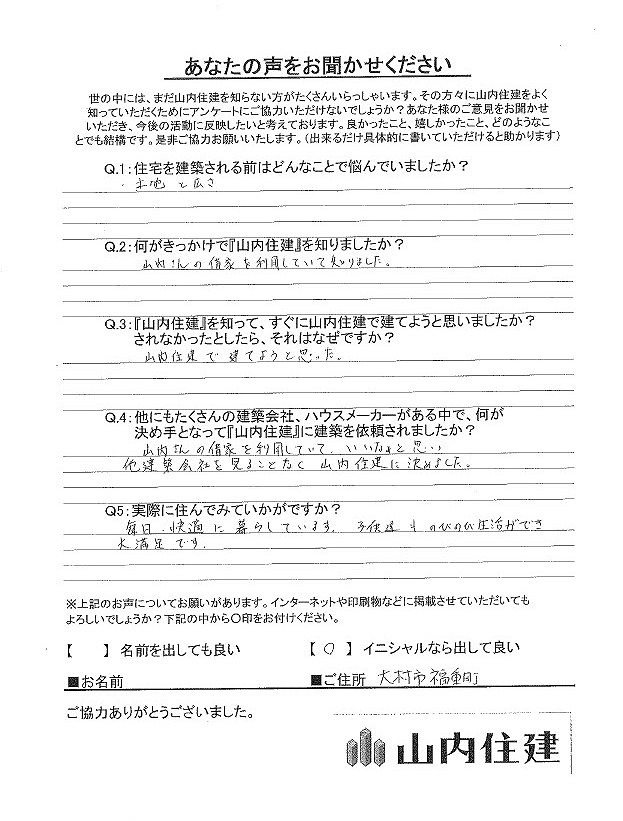 あなたの声をお聞かせください
世の中には、まだ山内住建を知らない方がたくさんいらっしゃいます。その方々に山内住建をよく
知っていただくためにアンケートにご協力いただけないでしょうか？あなた様のご意見をお聞かせ
いただき、今後の活動に反映したいと考えております。良かったこと、嬉しかったこと、どのようなこ
とでも結構です。是非ご協力お願いいたします。（出来るだけ具体的に書いていただけると助かります）
Q.1：住宅を建築される前はどんなことで悩んでいましたか？
・土地と広さ
Q.2：何がきっかけで『山内住建』を知りましたか？
山内さんの借家を利用していて知りました。
Q.3：『山内住建』を知って、すぐに山内住建で建てようと思いましたか？
されなかったとしたら、それはなぜですか？
山内住建で建てようと思った。
Q.4：他にもたくさんの建築会社、ハウスメーカーがある中で、何が
決め手となって『山内住建』に建築を依頼されましたか？
山内さんの借家を利用していて、いいなぁと思い
他建築会社を見ることなく山内住建に決めました。
Q5：実際に住んでみていかがですか？
毎日、快適に暮らしています。子供達ものびのび生活ができ
大満足です。
※上記のお声についてお願いがあります。インターネットや印刷物などに掲載させていただいても
よろしいでしょうか？下記の中から〇印をお付けください。
【　】名前を出しても良い　【〇】イニシャルなら出して良い
■お名前　■ご住所 大村市福重町
ご協力ありがとうございました。
山内住建